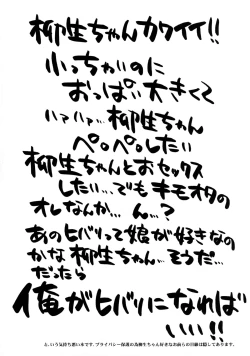 柳生ちゃんカワイイ!!
小っちゃいのに
おっぱい大きくて
ハァハァ…柳生ちゃん
ペロペロしたい
柳生ちゃんとおセックス
したい…でもキモオタの
オレなんか…ん…?
あのヒバリって娘が好きなの
かな柳生ちゃん…そうだ…
だったら
俺がヒバリになれば
いい!!
と、いう気持ち悪い本です。プライバシー保護の為柳生ちゃん好きなお前らの目線は隠してあります。